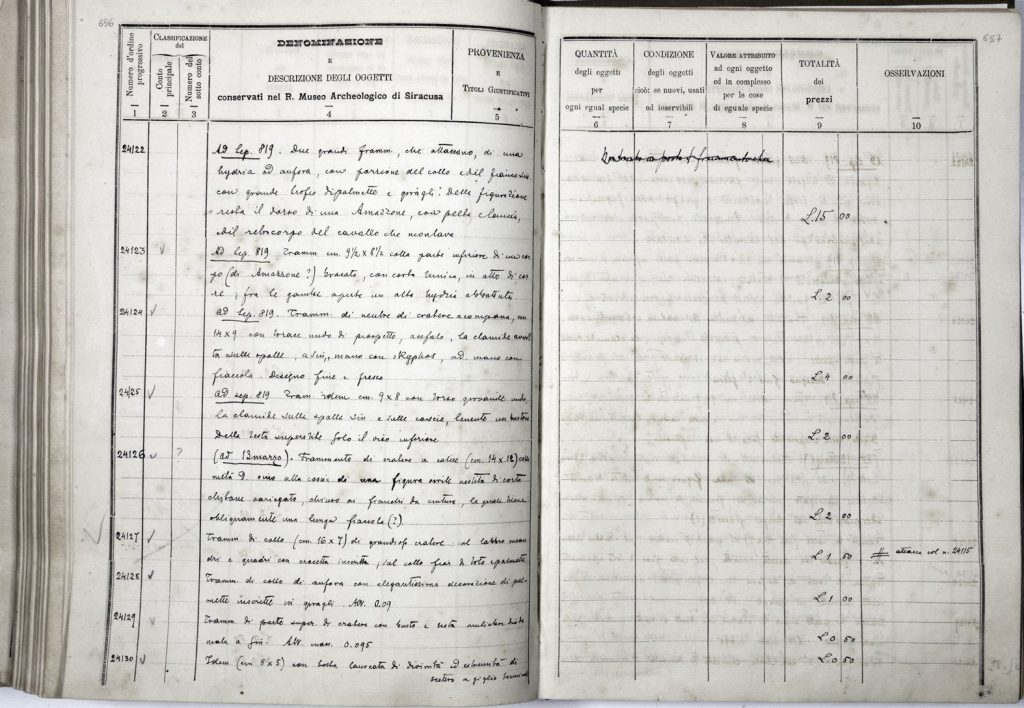 656
Numero d'ordine progressivo
CLASSIFICAZIONE
del
Conto principale
Numero del sotto conto
DENOMINAZIONE
E
DESCRIZIONE DEGLI OGGETTI
conservati nel R. Museo Archeologico di Siracusa
PROVENIENZA
E
TITOLI GIUSTIFICATIVI
1 2 3 4 5
24122 Ad Sep. 819. Due grandi framm., che attaccano, di una
hydria ad anfora, con porzione del collo e del fianco
con grande trofeo di palmette e giragli. Della figurazione
resta il dorso di una Amazzone, con pelta e lancia,
e di retrocorpo del cavallo che montava
24123 Ad Sep. 819 Framm. cm. 9½ x 8½ colla parte inferiore di un cor
po (di Amazzone?) bracato, con corta tunica, in atto di
; fra le gambe aperte un alto hydria
24124 ad Sep. 819. Framm. di ventre di cratere a campana, cm
14 x 9 con torace nudo di prospetto, acefalo, la clamide
ta sulle spalle, a sin. mano con skyphos, ad. mano con
fiaccola. Disegno fine e fresco
24125 ad sep. 819 Fram. idem cm. 9 x 8 con torso giovanile nudo,
la clamide sulla spalla sin e sulle coscie, tenente un bastone
Della testa superstite solo il viso inferiore
24126 ? (ad 13 marzo). Frammento di cratere a calice (cm. 14 x 12) colla
metà D. sino alla coscia di una figura virile vestita di corto
chitone variegato, chiuso ai fianchi da cintura, la quale tiene
obliquamente una lunga fiaccola (?)
24127 Framm. di collo (cm. 16 x 7) di grandioso cratere: sul labbro mean
dri e quadri con crocetta inscritta; sul collo di loto e palmette
24128 Framm. di collo di anfora con elegantissima decorazione di pal
mette inscritte in giragli. Alt. 0.09
24129 Framm. di parte super. di cratere con busto e testa muliebre diade
mata a sin. Alt. mass. 0.095
24130 Idem (cm 8 x 5) con testa laureata di divinità ed estremità di
scettro a giglio
657
QUANTITÀ
degli oggetti
per
ogni egual specie
CONDIZIONE
degli oggetti
cioè: se nuovi, usati
od inservibili
VALORE ATTRIBUITO
ad ogni oggetto
ed in complesso
per le cose
di eguale specie
TOTALITÀ
dei
prezzi
OSSERVAZIONI
6 7 8 9 10
L. 15 00
L. 2 00
L. 4 00
L. 2 00
L. 2 00
L. 1 50 # attacca col n. 24115
L. 1 00
L. 0 50
L. 0 50